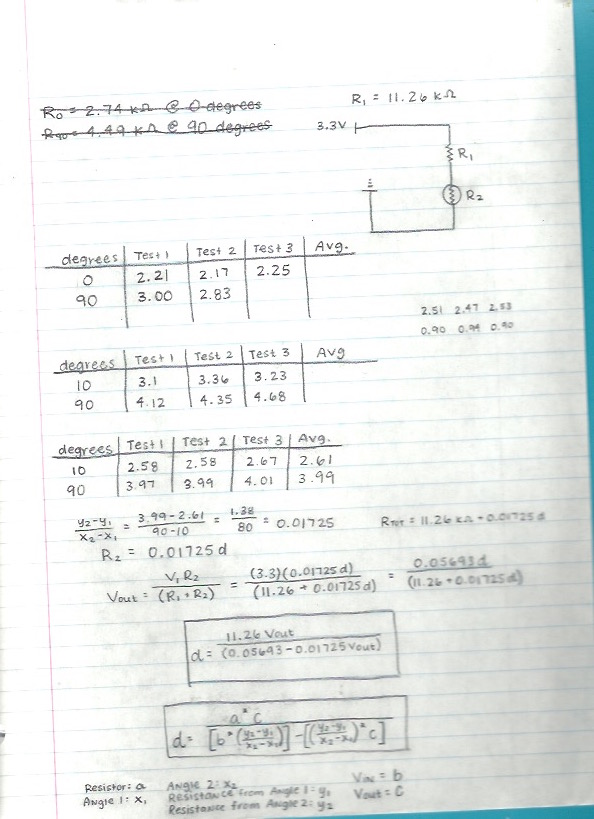 R₀ = 2.74 kΩ @ 0 degrees
R₉₀ = 4.49 kΩ @ 90 degrees
R₁ = 11.26 kΩ
3.3V
R₁
R₂
degrees Test 1 Test 2 Test 3 Avg.
0 2.21 2.17 2.25
90 3.00 2.83
2.51 2.47 2.53
0.90 0.94 0.90
degrees Test 1 Test 2 Test 3 Avg
10 3.1 3.36 3.23
90 4.12 4.35 4.68
degrees Test 1 Test 2 Test 3 Avg.
10 2.58 2.58 2.67 2.61
90 3.97 3.99 4.01 3.99
(y₂-y₁)/(x₂-x₁) = (3.99-2.61)/(90-10) = 1.38/80 = 0.01725
R_TOT = 11.26 kΩ + 0.01725 d
R₂ = 0.01725 d
Vout = V₁ R₂/(R₁+R₂) = (3.3)(0.01725d)/(11.26 + 0.01725d) = 0.05693d/(11.26 + 0.01725d)
d = 11.26 Vout/(0.05693-0.01725 Vout)
d = a*c/[b*((y₂-y₁)/(x₂-x₁))]-[((y₂-y₁)/(x₂-x₁))*c]
Resistor: a Angle 2: x₂ Vin = b
Angle 1: x₁ Resistance from Angle 1: y₁ Vout = C
Resistance from Angle 2: y₂